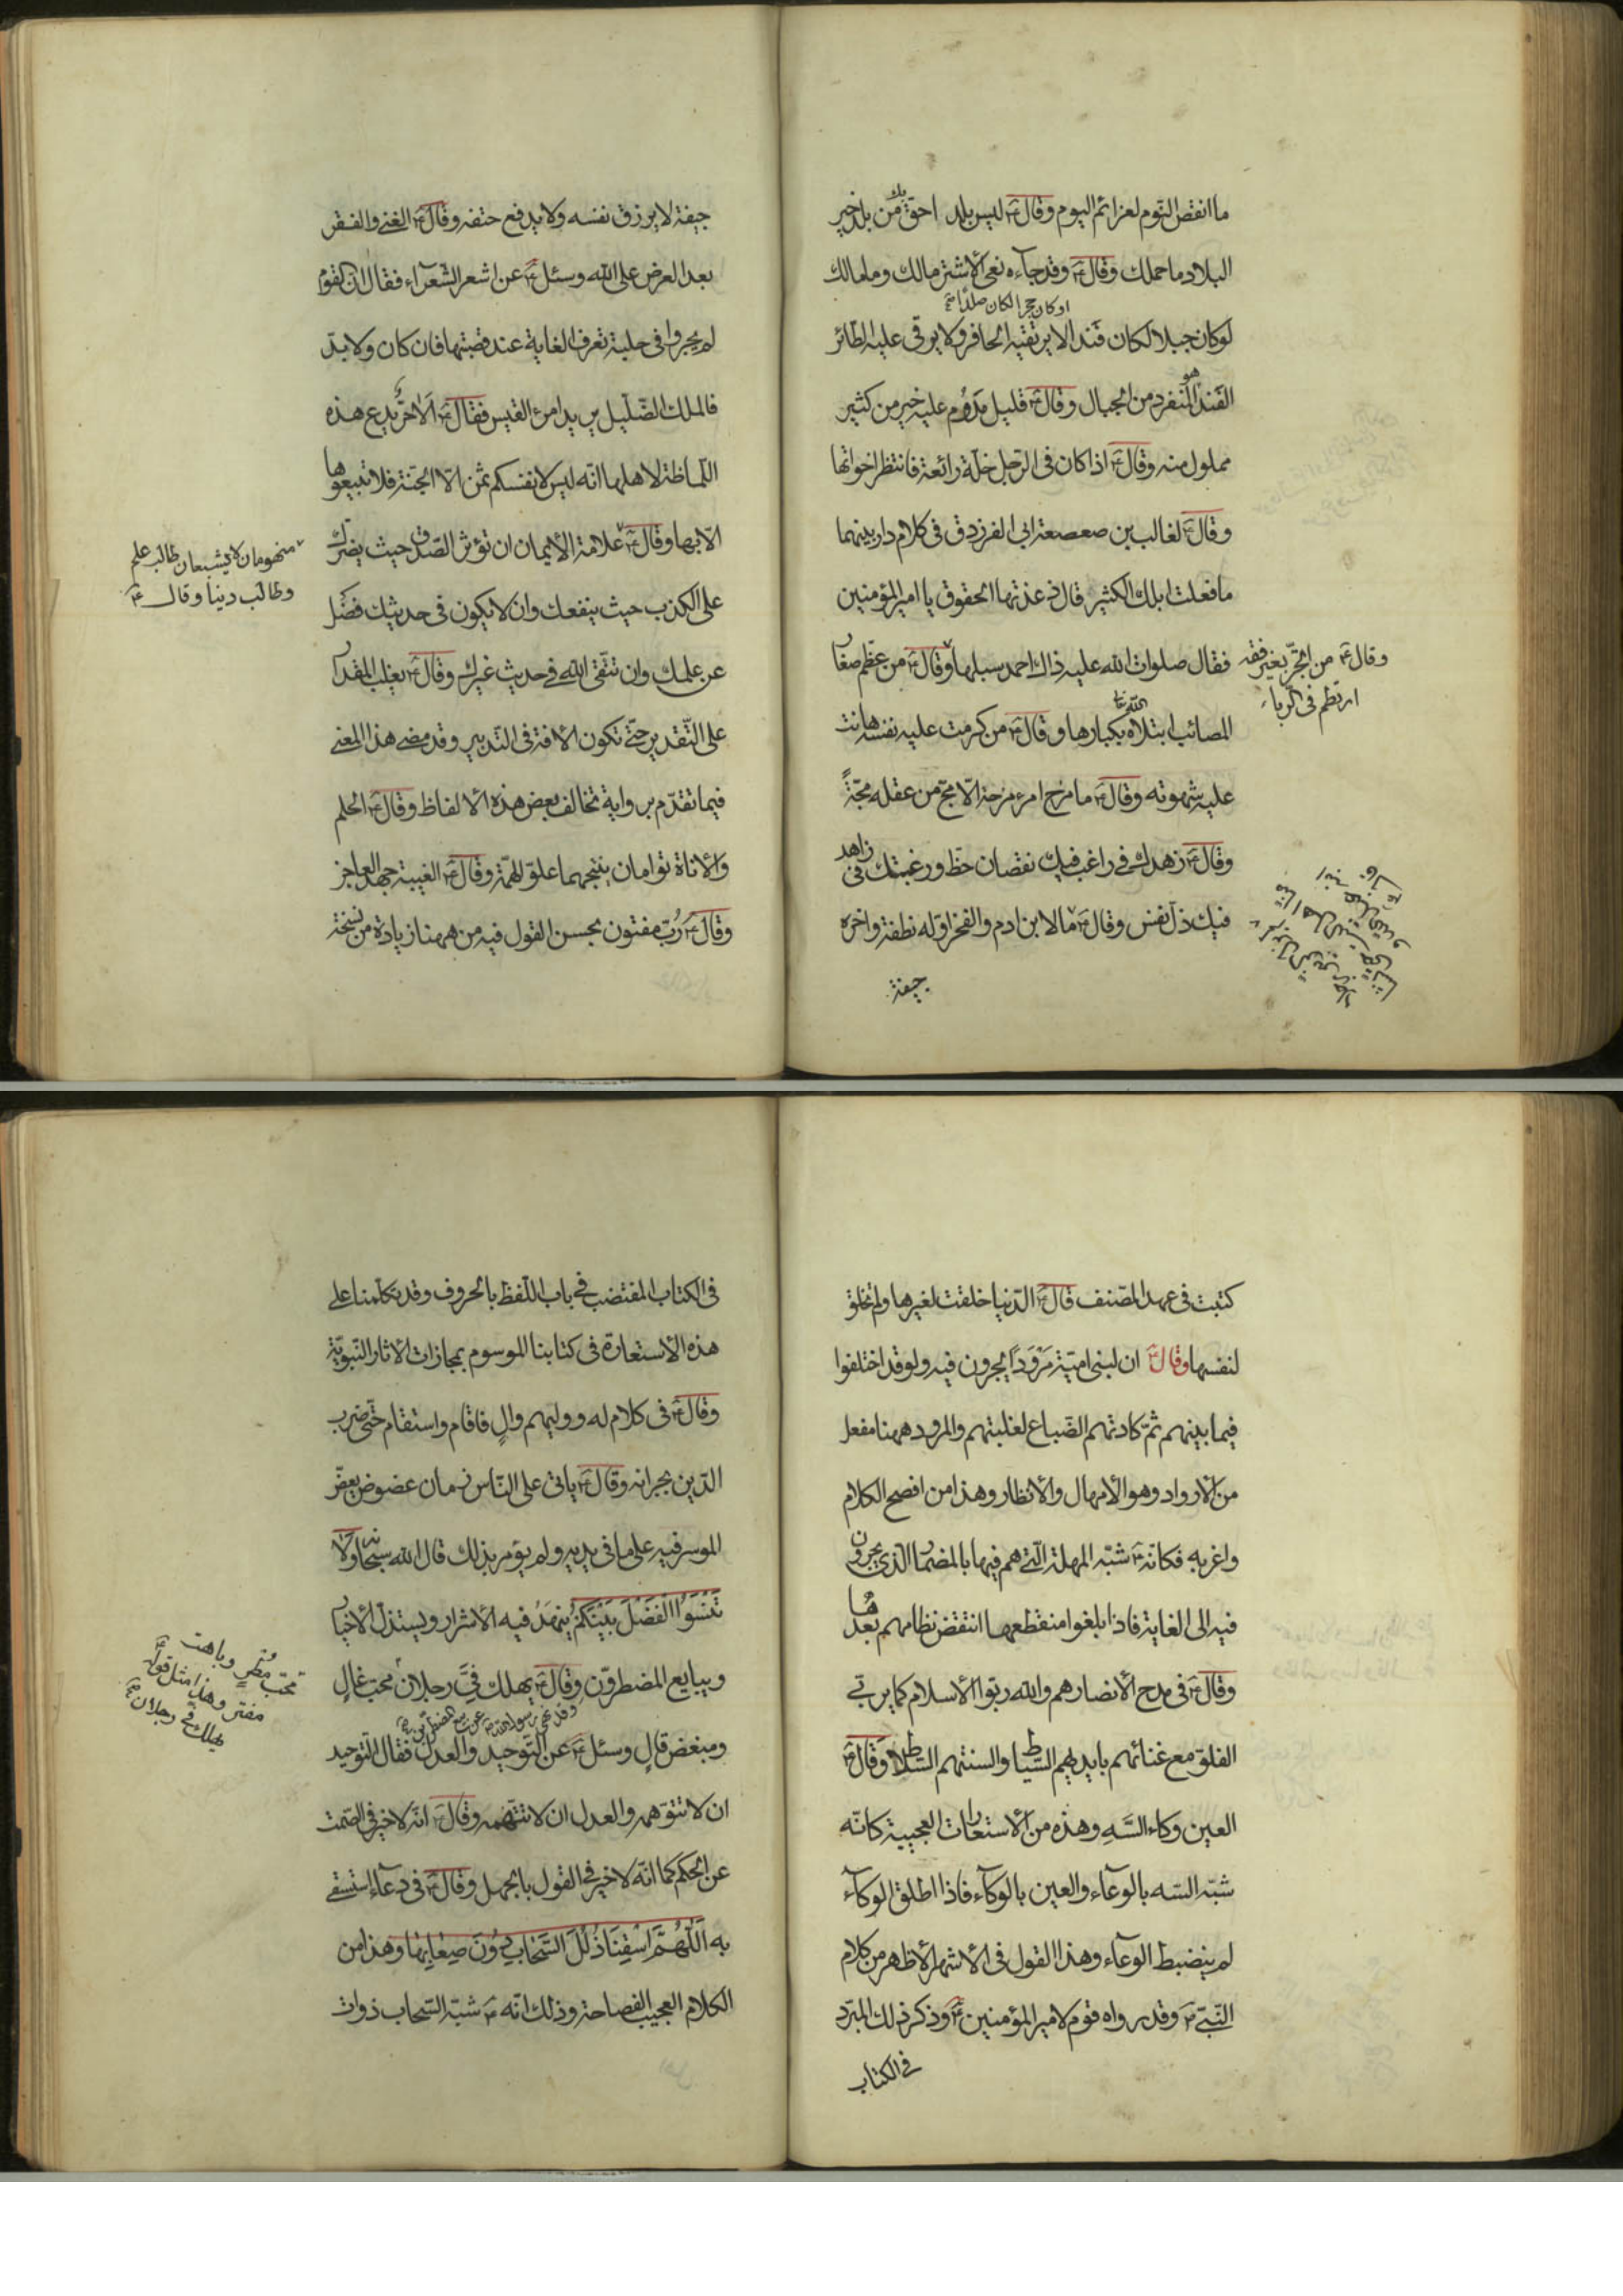 ما انقض النوم لعزائم اليوم وقال ع ليس بلد احق بك من بلد خير
البلاد ما حملك وقال ع وقد جاءه نعى الاشتر مالك وما مالك
او كان حجرا لكان صلدا صح
لو كان جبلا لكان فندا لا يرتقيه الحافر ولا يوقى عليه الطائر
الفند هو المنفرد من الجبال وقال ع قليل مدوم عليه خير من كثير
مملول منه وقال ع اذا كان فى الرجل خلة رائعة فانتظر اخواتها
وقال ع لغالب بن صعصعة ابى الفرزدق فى كلام دار بينهما
ما فعلت ابلك الكثيرة قال ذعذعتها الحقوق يا امير المؤمنين
فقال صلوات الله عليه ذاك احمد سبلها وقال ع من عظم صغار
وقال ع من اتجر بغير فقه
ارتطم فى الربا
المصائب ابتلاه الله بكبارها وقال ع من كرمت عليه نفسه هانت
عليه شهوته وقال ع ما مزح امرء مزحة الا مج من عقله مجة
وقال ع زهدك فى راغب فيك نقصان حظ ورغبتك فى زاهد
فيك ذل نفس وقال ع ما لابن ادم والفخر اوله نطفة واخره
جيفة
جيفة لا يرزق نفسه ولا يدفع حتفه وقال ع الغنى والفقر
بعد العرض على الله وسئل ع عن اشعر الشعراء فقال ان القوم
لم يجروا فى حلبة تعرف الغاية عند قصبتها فان كان ولا بد
فالملك الضليل يريد امرء القيس فقال ع الا حر يدع هذه
اللماظة لاهلها انه ليس لانفسكم ثمن الا الجنة فلا تبيعوها
الا بها وقال ع علامة الايمان ان تؤثر الصدق حيث يضرك
منهومان لا يشبعان طالب علم
وطالب دينا وقال ع
على الكذب حيث ينفعك وان لا يكون فى حديثك فضل
عن علمك وان تتقى الله فى حديث غيرك وقال ع يغلب المقدار
على التقدير حتى تكون الافة فى التدبير وقد مضى هذا المعنى
فيما تقدم برواية تخالف بعض هذه الالفاظ وقال ع الحلم
والاناة توامان ينتجهما علو الهمة وقال ع الغيبة جهد العاجز
وقال ع رب مفتون بحسن القول فيه من ههنا زيادة من نسخة
كتبت فى عهد المصنف قال ع الدنيا خلقت لغيرها ولم تخلق
لنفسها وقال ع ان لبنى امية مرودا يجرون فيه ولو قد اختلفوا
فيما بينهم ثم كادتهم الضباع لغلبتهم والمرود ههنا مفعل
من الارواد وهو الامهال والانظار وهذا من افصح الكلام
واغربه فكانه ع شبه المهلة التى هم فيها بالمضمار الذى يجرون
فيه الى الغاية فاذا بلغوا منقطعها انتقض نظامهم بعدها
وقال ع فى مدح الانصار هم والله ربوا الاسلام كما يربى
الفلو مع غنائهم بايديهم السباط والسنتهم السلاط وقال ع
العين وكاء السه وهذه من الاستعارات العجيبة كانه
شبه السه بالوعاء والعين بالوكاء فاذا اطلق الوكاء
لم ينضبط الوعاء وهذا القول فى الاشهر الاظهر من كلام
النبى ص وقد رواه قوم لامير المؤمنين ع وذكر ذلك المبرد
فى الكتاب
فى الكتاب المقتضب فى باب اللفظ بالحروف وقد تكلمنا على
هذه الاستعارة فى كتابنا الموسوم بمجازات الاثار النبوية
وقال ع فى كلام له ووليهم وال فاقام واستقام حتى ضرب
الدين بجرانه وقال ع ياتى على الناس زمان عضوض يعض
الموسر فيه على ما فى يديه ولم يؤمر بذلك قال الله سبحانه ولا
تَنْسَوُا الْفَضْلَ بَيْنَكُمْ ينهد فيه الاشرار ويستذل الاخيار
ويبايع المضطرون وقال ع يهلك فى رجلان محب غال
وقد نهى رسول الله ص عن بيع المضطرين صح
محب مطر وباهت
مفتر وهذا مثل قوله ع
يهلك فى رجلان صح
ومبغض قال وسئل ع عن التوحيد والعدل فقال التوحيد
ان لا تتوهمه والعدل ان لا تتهمه وقال ع انه لا خير فى الصمت
عن الحكم كما انه لا خير فى القول بالجهل وقال ع فى دعاء استسقى
به اللّهُمَّ اسْقِنَا ذُلَلَ السَّحَابِ دُونَ صِعَابِهَا وهذا من
الكلام العجيب الفصاحة وذلك انه ع شبه السحاب ذوات